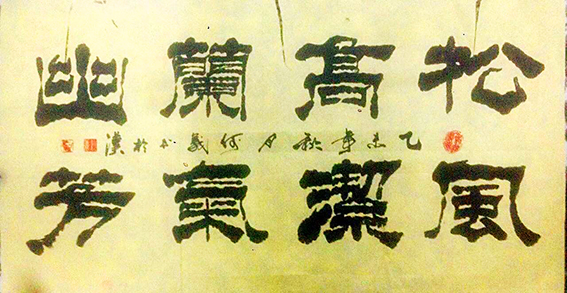 松風
高潔
蘭氣
幽芳
乙未年秋月何義书於漢